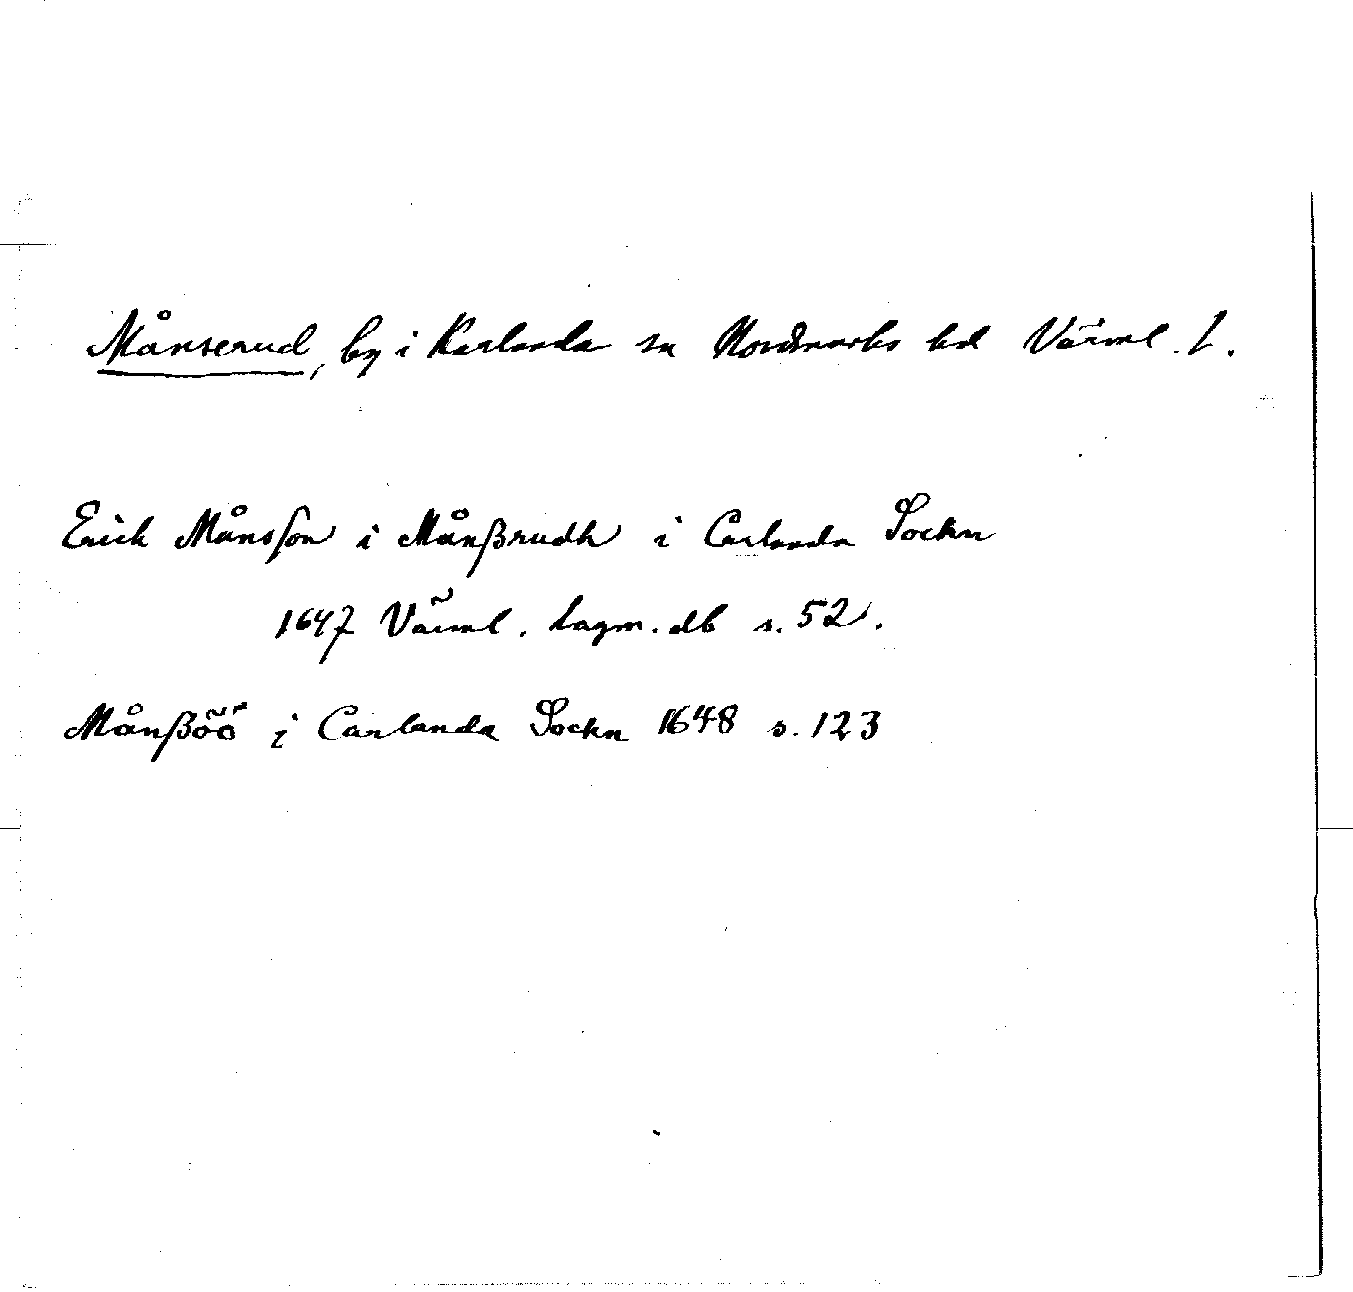 Månserud, by i Karlanda sn Nordmarks hd Värml. L.
Erick Månsson i Månßrudh i Carlanda Sockn
1647 Värml. Lagm. db s. 52.
Månßöö i Carlanda Sockn 1648 s. 123